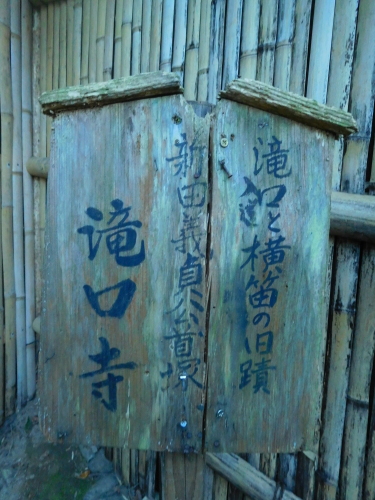 滝口と横笛の旧蹟
新田義貞公首塚
滝口寺